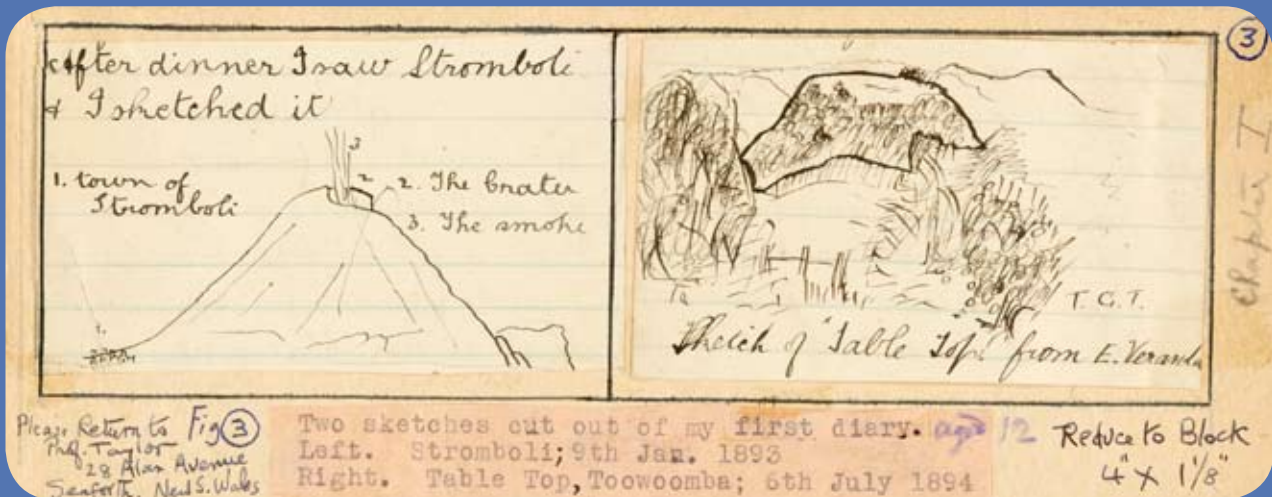 After dinner I saw Stromboli
& I sketched it
1. town of
Stromboli
3
2
2. The Crater
3. The smoke
1.
3
Chapter I
T. G. T.
Sketch of "Table Top" from E. Veranda
Please Return to
Prof. Taylor
28 Alan Avenue
Seaforth, New S. Wales
Fig 3
Two sketches cut out of my first diary. age 12
Left. Stromboli; 9th Jan. 1893
Right. Table Top, Toowoomba; 6th July 1894
Reduce to Block
4" X 1⅛"